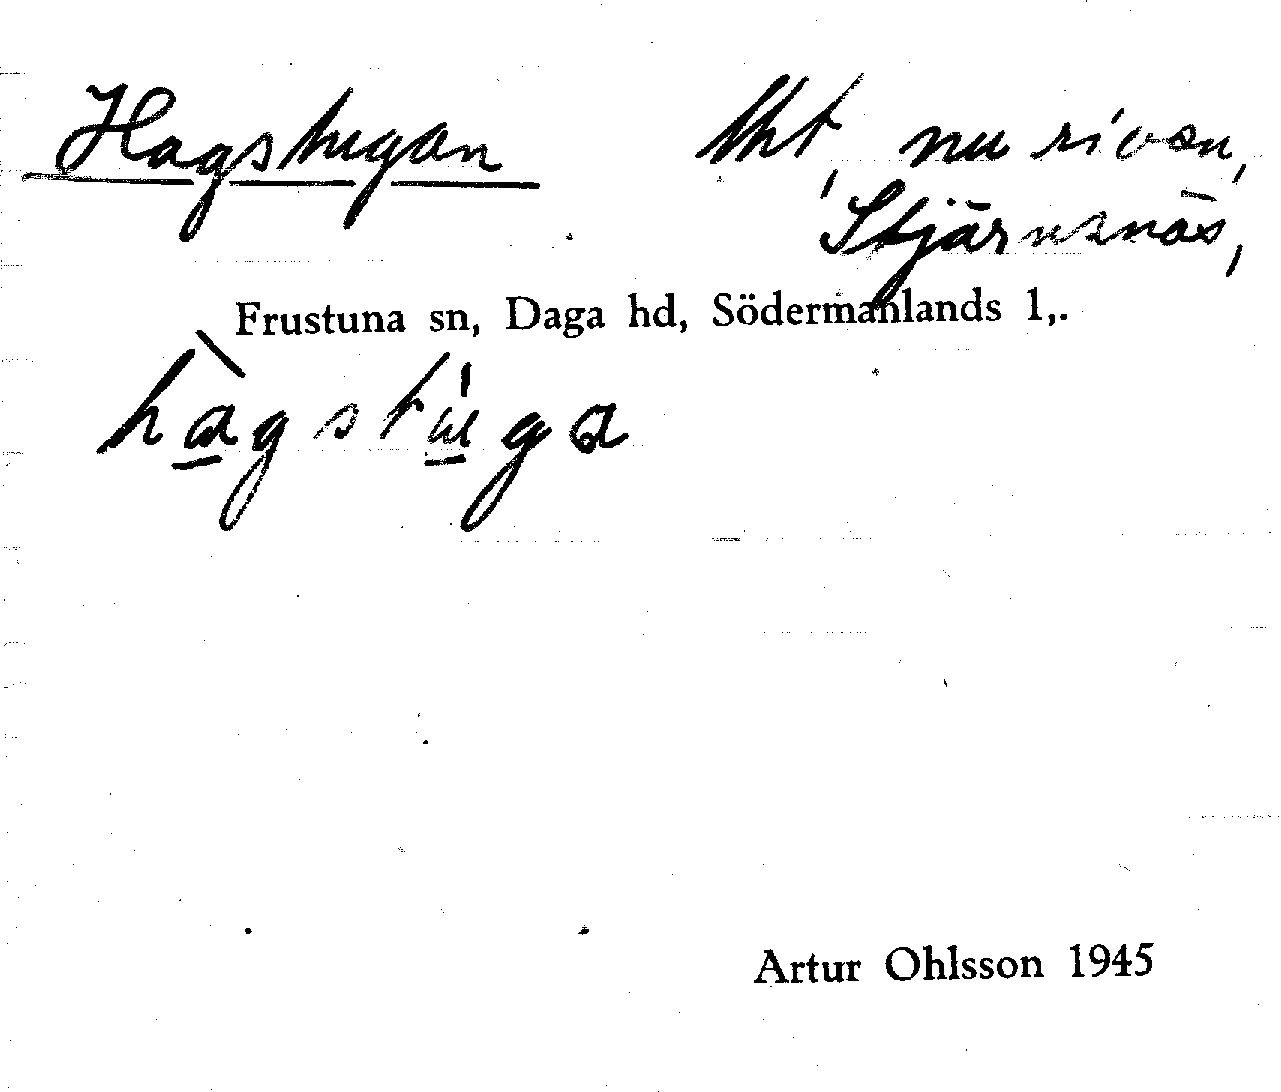 Hagstugan lht, nu riven,
Stjärnsnäs,
Frustuna sn, Daga hd, Södermanlands l,.
hàgstúga
Artur Ohlsson 1945